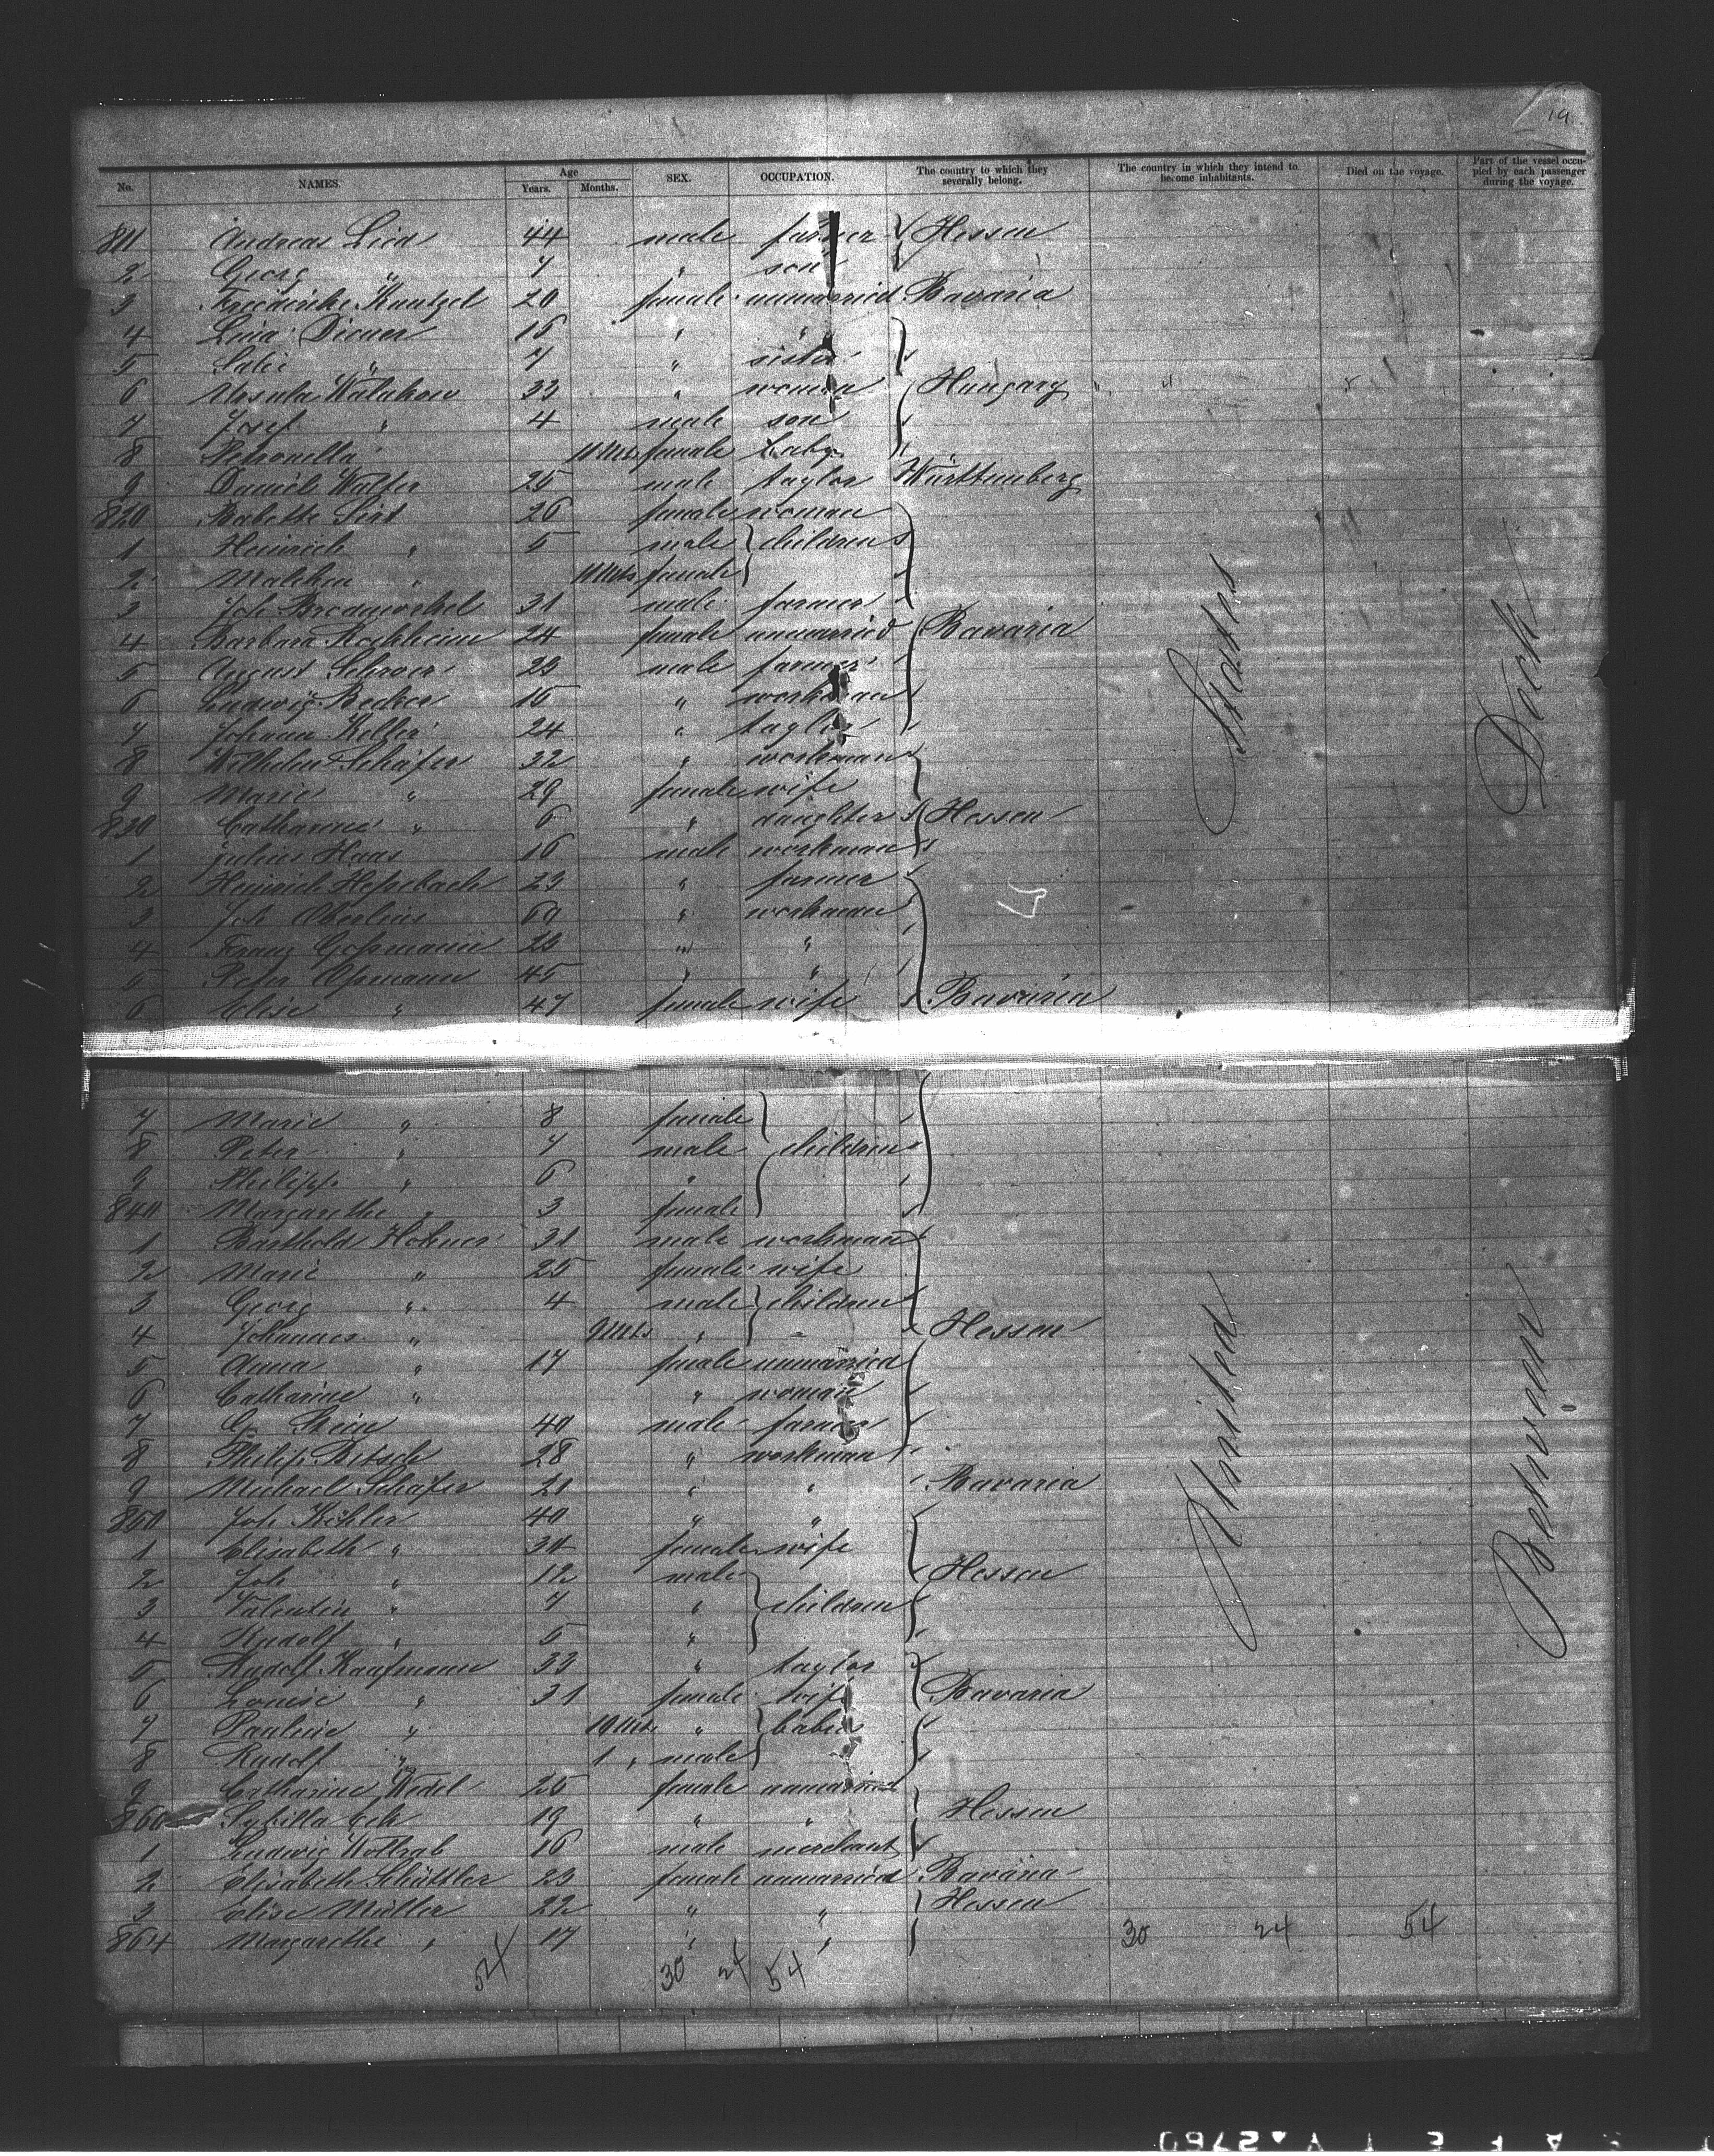 19
No. NAMES. Age Years. Months. SEX. OCCUPATION. The country to which they severally belong. The country in which they intend to become inhabitants. Died on the voyage. Part of the vessel occupied by each passenger during the voyage.
811 Andreas Lied 44 male farmer Hessen
2 Georg " 7 " son
3 Friederike Kuntzel 20 female unmarried Bavaria
4 Lina Diener 16 " "
5 " 7 " sister
6 Ursula Walakow 33 " woman Hungary " " "
7 Josef " 4 male son
8 Petronella 11 Mts female baby "
9 Daniel Walter 25 male taylor Württemberg
820 Babette Sirt 26 female woman
1 Heinrich " 5 male children
2 Malchen " 11 Mts female
3 Joh. 31 male farmer
4 Barbara Hochheim 24 female unmarried Bavaria
5 August Schroer 23 male farmer
6 Ludwig Becker 16 " workman
7 Johann Keller 24 " taylor
8 Wilhelm Schäfer 32 " workman
9 Marie " 29 female wife
830 Catharine " 6 " daughter Hessen
1 Julius Haas 16 male workman
2 Heinrich 23 " farmer
3 Joh. 60 " workman
4 Franz Goßmann 23 " "
5 Peter Oßmann 45 " "
6 Elise " 47 female wife Bavaria
7 Marie " 8 female
8 Peter " 7 male children
9 Philipp " 6 "
840 Margarethe " 3 female
1 Barthold Höhner 31 male workman
2 Marie " 25 female wife
3 Georg " 4 male children
4 Johannes " 9 Mts " Hessen
5 Anna " 17 female unmarried
6 Catharine " " woman
7 G. Stein 40 male farmer
8 Philip Betsch 28 " workman
9 Michael Schäfer 21 " " Bavaria
850 Joh. Köhler 40 " "
1 Elisabeth " 34 female wife
2 Joh. " 12 male Hessen
3 Valentin " 7 " children
4 Rudolf " 5 "
5 Rudolf Kaufmann 33 " taylor
6 Louise " 31 female wife Bavaria
7 Pauline " 10 Mts " babies
8 Rudolf " 1 " male
9 Catharine Wedel 25 female unmarried
860 Sybilla 19 " " Hessen
1 Ludwig Woltrab 16 male merchant
2 Elisabeth Schüttler 23 female unmarried Bavaria
3 Elise Müller 22 " " Hessen
864 Margarethe " 17 " "
30 24 54
54 30 24 54
United States
Between Deck